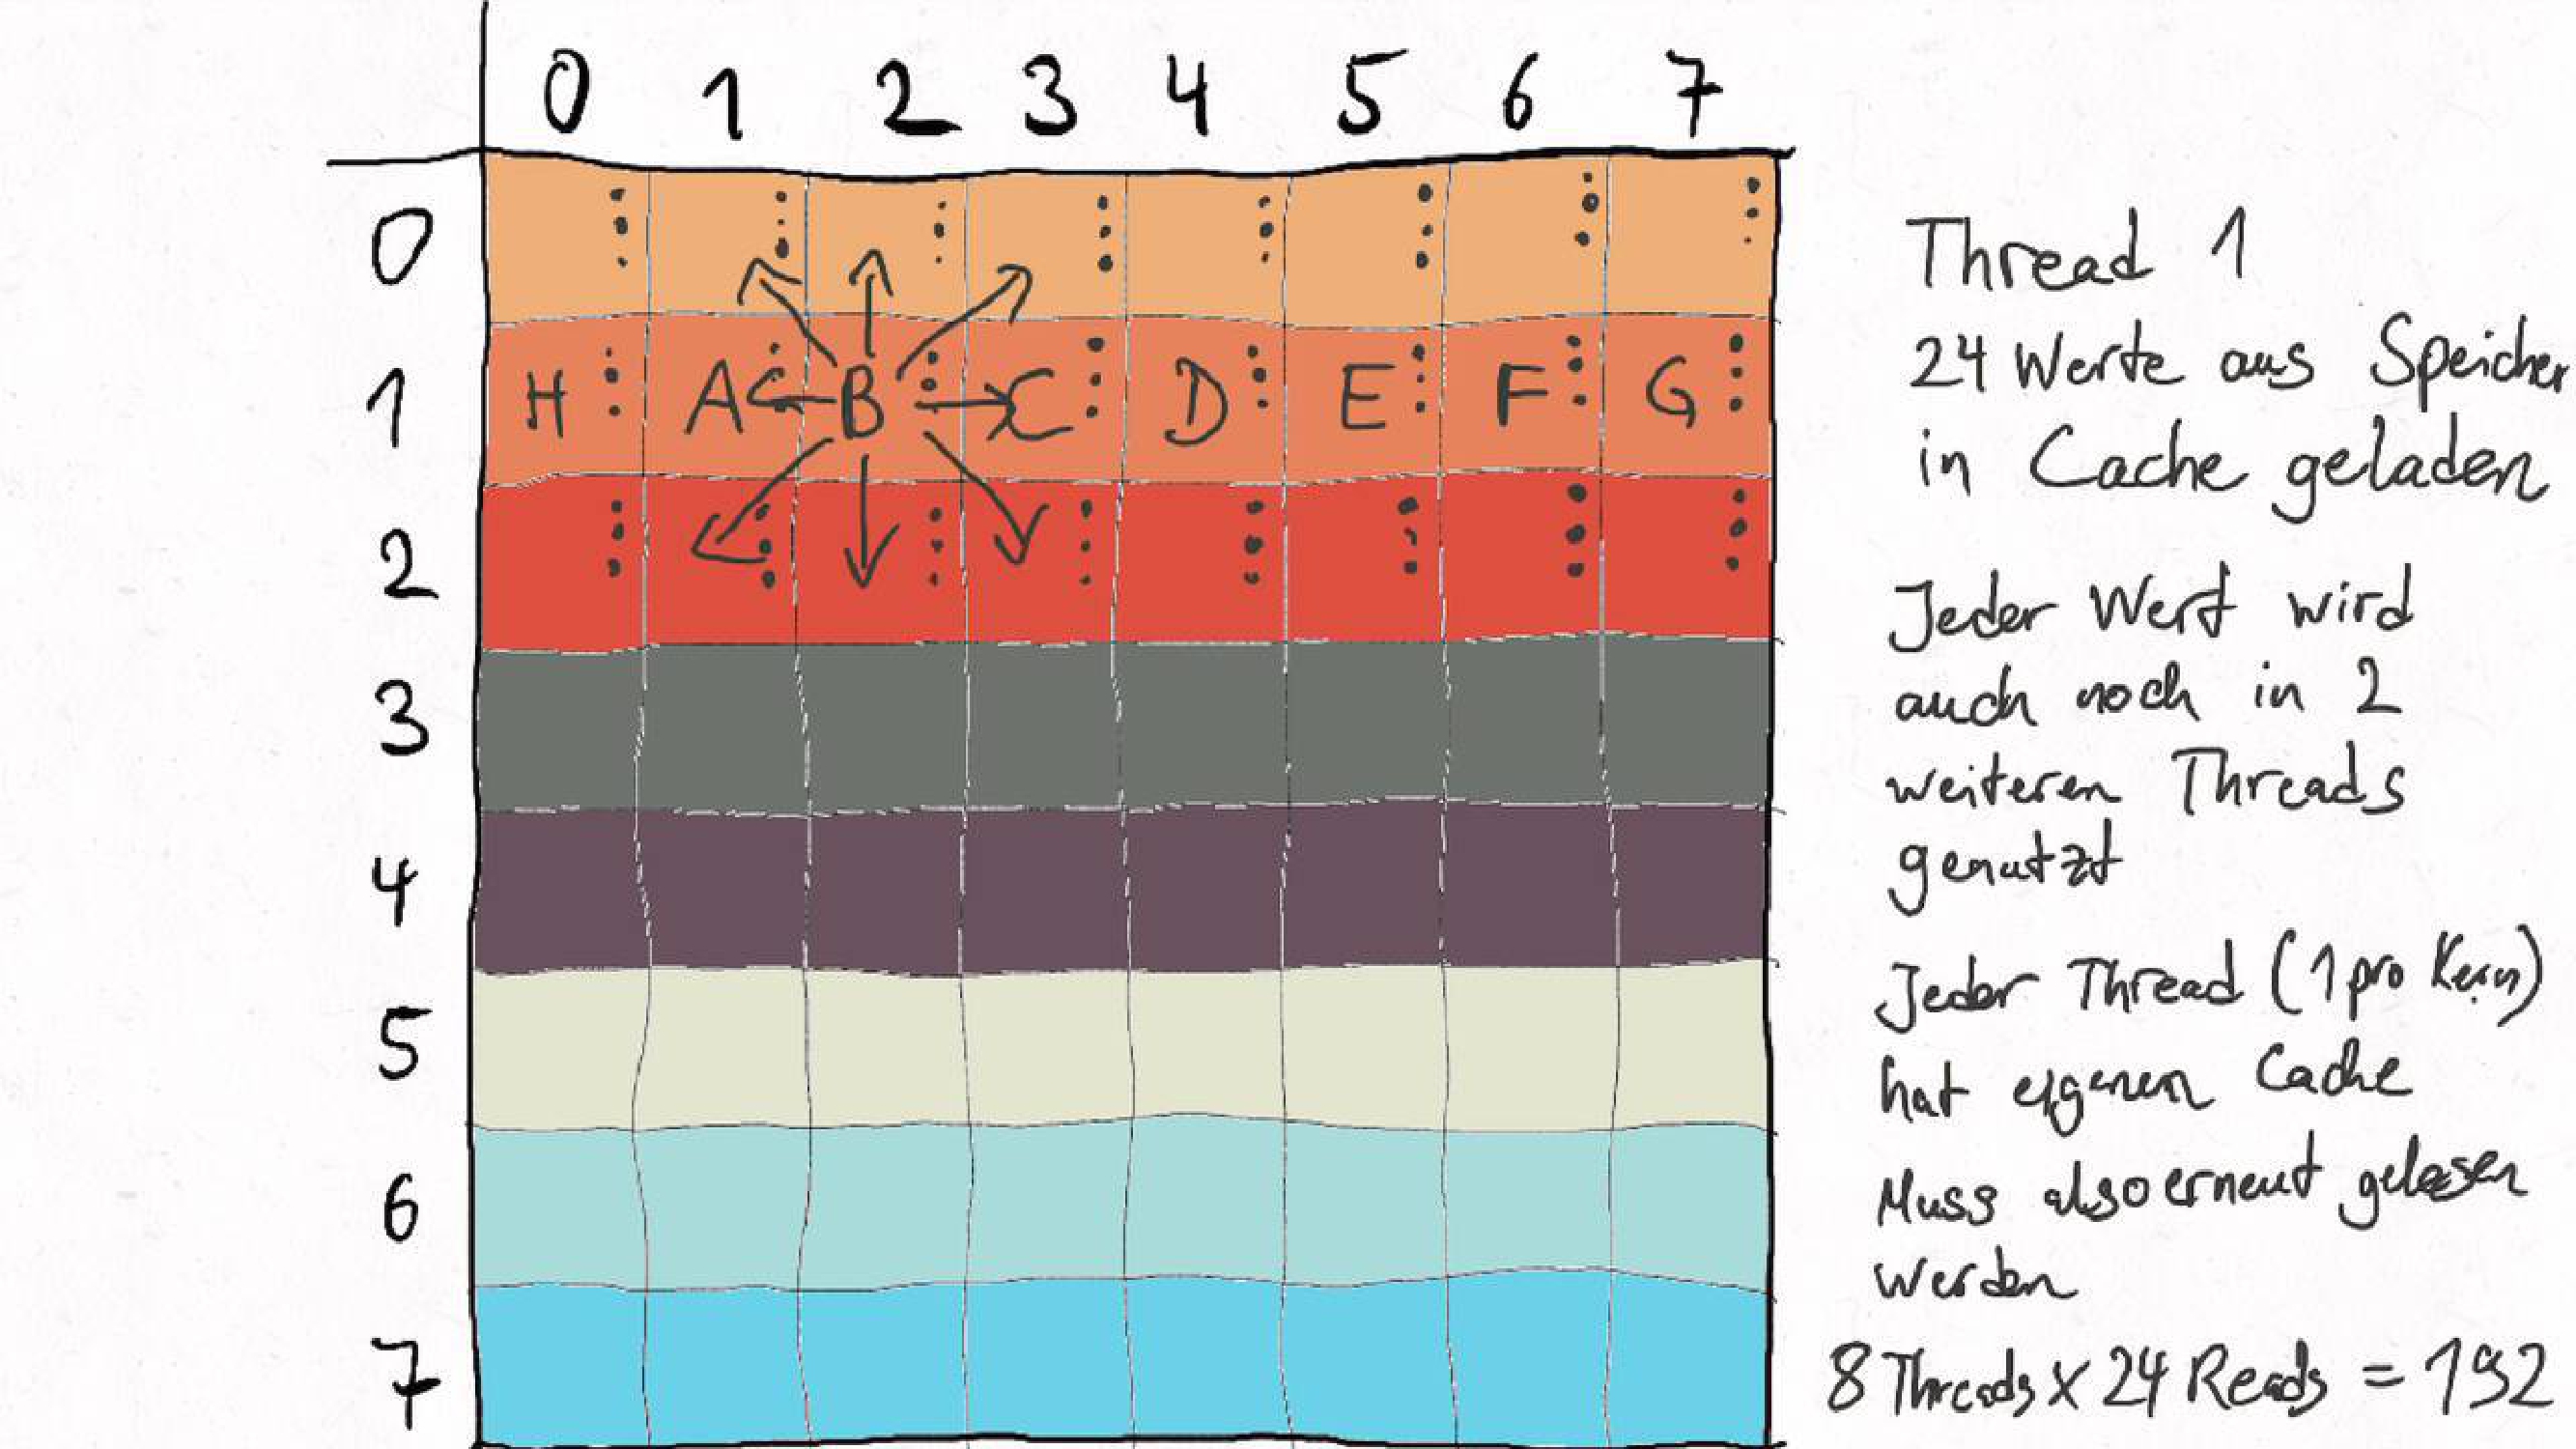 0 1 2 3 4 5 6 7
0
1 H A B C D E F G
2
3
4
5
6
7
Thread 1
24 Werte aus Speicher
in Cache geladen
Jeder Wert wird
auch noch in 2
weiteren Threads
genutzt
Jeder Thread (1 pro Kern)
hat eigenen Cache
Muss also erneut gelesen
werden
8 Threads x 24 Reads = 192